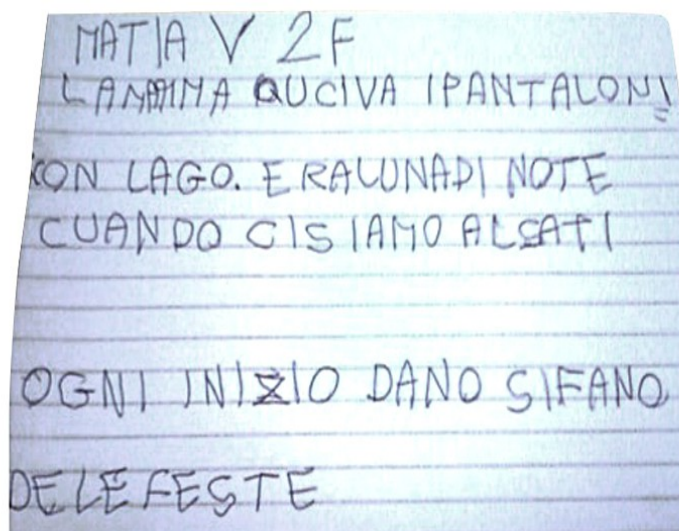 MATIA V 2F
LAMAMMA QUCIVA IPANTALONI
CON LAGO. ERALUNADI NOTE
CUANDO CISIAMO ALSATI
OGNI INIZIO DANO SIFANO
DELEFESTE